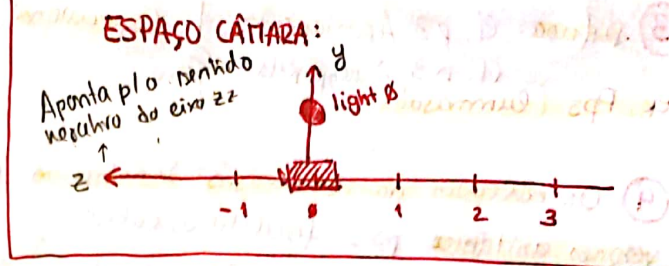 ESPAÇO CÂMARA:
Aponta p/o sentido
negativo do eixo zz
y
light 0
z
-1 0 1 2 3